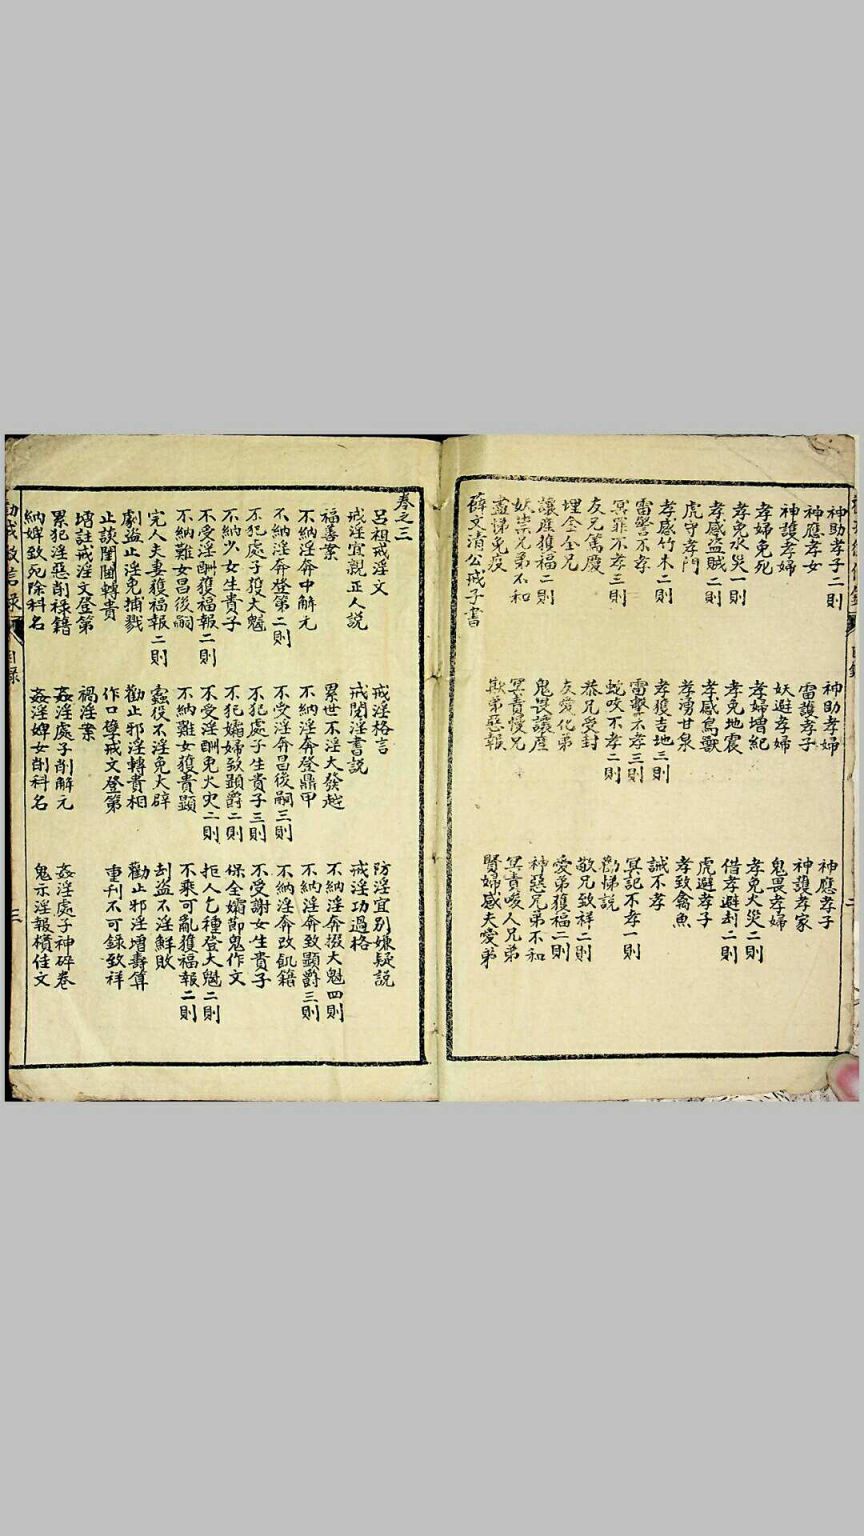 神助孝子二則 神助孝婦 神應孝子
神應孝女 雷護孝子 神護孝家
神護孝婦 妖避孝婦 鬼畏孝婦
孝婦免死 孝婦增紀 孝免火災二則
孝免水災一則 孝免地震 借孝避刦二則
孝感盜賊二則 孝感鳥獸 虎避孝子
虎守孝門 孝湧甘泉 孝致禽魚
孝感竹木二則 孝獲吉地三則 誡不孝
雷警不孝 雷擊不孝三則 冥記不孝一則
冥罪不孝三則 蛇咬不孝二則 勸悌説
友兄篤慶 恭兄受封 敬兄致祥二則
埋金全兄 友愛化弟 愛弟獲福二則
讓產獲福二則 鬼畏讓產 神惡兄弟不和
妖祟兄弟不和 冥責慢兄 冥責唆人兄弟
盡悌免疫 欺弟惡報 賢婦感夫愛弟
薛文清公戒子書
卷之三
呂祖戒淫文 戒淫格言 防淫宜別嫌疑説
戒淫宜親正人説 戒閱淫書説 戒淫功過格
福善案 累世不淫大發越 不納淫奔掇大魁四則
不納淫奔中解元 不納淫奔登鼎甲 不納淫奔致顯爵三則
不納淫奔登第二則 不受淫奔昌後嗣三則 不納淫奔改飢籍
不犯處子獲大魁 不犯處子生貴子三則 不受謝女生貴子
不納少女生貴子 不犯孀婦致顯爵二則 保全孀節鬼作文
不受淫酬獲福報二則 不受淫酬免火灾二則 拒人乞種登大魁二則
不納難女昌後嗣 不納難女獲貴顯 不乘可亂獲福報二則
完人夫妻獲福報二則 蠹役不淫免大辟 刦盜不淫鮮敗
劇盜止淫免捕戮 勸止邪淫轉貴相 勸止邪淫增壽算
止談閨閫轉貴 作口孽戒文登第 重刊不可錄致祥
增註戒淫文登第 禍淫案
累犯淫惡削祿籍 姦淫處子削解元 姦淫處子神碎卷
納婢致死除科名 姦淫婢女削科名 鬼示淫報擯佳文
目錄
三